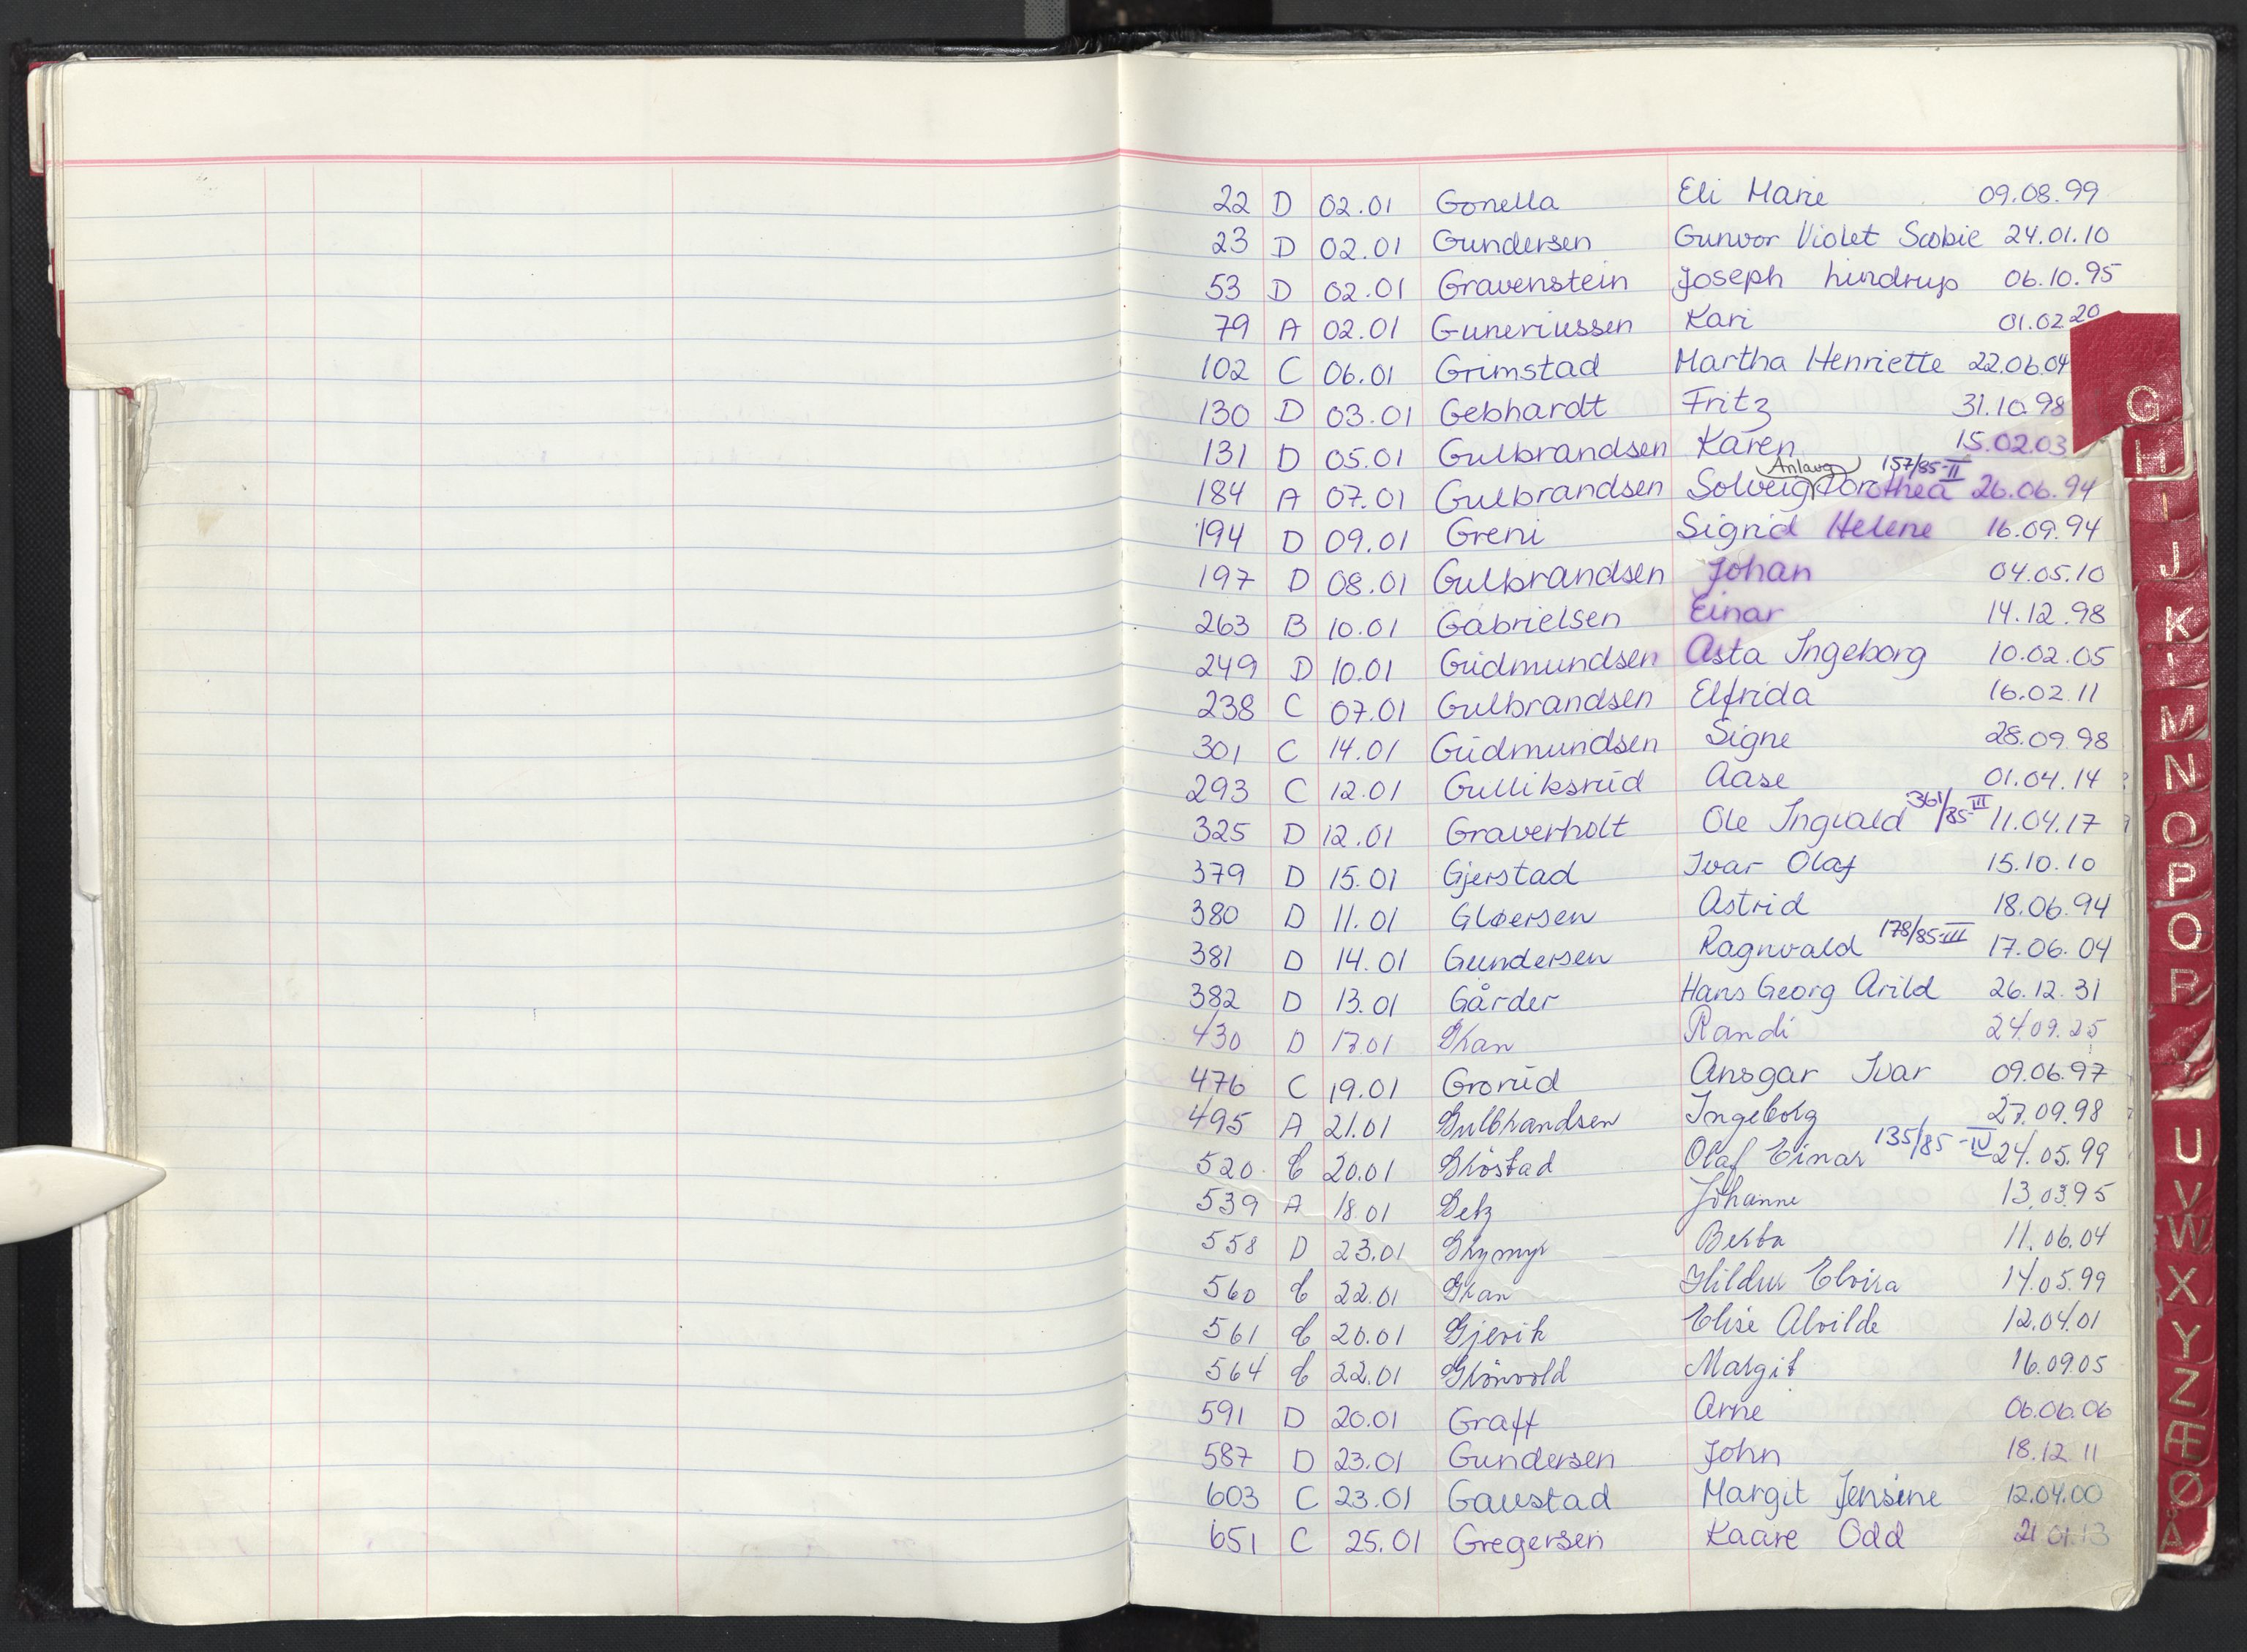 22 D 02.01 Gonella Eli Marie 09.08.99
23 D 02.01 Gundersen Gunvor Violet Scobie 24.01.10
53 D 02.01 Gravenstein Joseph Lindrup 06.10.95
79 A 02.01 Guneriussen Kari 01.02.20
102 C 06.01 Grimstad Martha Henriette 22.06.04
130 D 03.01 Gebhardt Fritz 31.10.98
131 D 05.01 Gulbrandsen Karen 15.02.03
Anlaug 157/85-II
184 A 07.01 Gulbrandsen Solveig Dorothea 26.06.94
194 D 09.01 Greni Sigrid Helene 16.09.94
197 D 08.01 Gulbrandsen Johan 04.05.10
263 B 10.01 Gabrielsen Einar 14.12.98
249 D 10.01 Gudmundsen Asta Ingeborg 10.02.05
238 C 07.01 Gulbrandsen Elfrida 16.02.11
301 C 14.01 Gudmundsen Signe 28.09.98
293 C 12.01 Gulliksrud Aase 01.04.14
325 D 12.01 Graverholt Ole Ingvald 361/85-III 11.04.17
379 D 15.01 Gjerstad Ivar Olaf 15.10.10
380 D 11.01 Gløersen Astrid 18.06.94
381 D 14.01 Gundersen Ragnvald 178/85-III 17.06.04
382 D 13.01 Gårder Hans Georg Arild 26.12.31
430 D 17.01 Gran Randi 24.09.25
476 C 19.01 Grorud Ansgar Ivar 09.06.97
495 A 21.01 Gulbrandsen Ingeborg 27.09.98
520 C 20.01 Gröstad Olaf Einar 135/85-IV 24.05.99
539 A 18.01 Getz Johanne 13.03.95
558 D 23.01 Grymyr Berta 11.06.04
560 C 22.01 Gran Hildur Elvira 14.05.99
561 C 20.01 Gjevik Elise Alvilde 12.04.01
564 C 22.01 Grönvold Margit 16.09.05
591 D 20.01 Graff Arne 06.06.06
587 D 23.01 Gundersen John 18.12.11
603 C 23.01 Gaustad Margit Jensine 12.04.00
651 C 25.01 Gregersen Kaare Odd 21.01.13
G
H
I
J
K
M
N
O
P
Q
R
U
V
W
X
Y
Z
Æ
Ø
Å